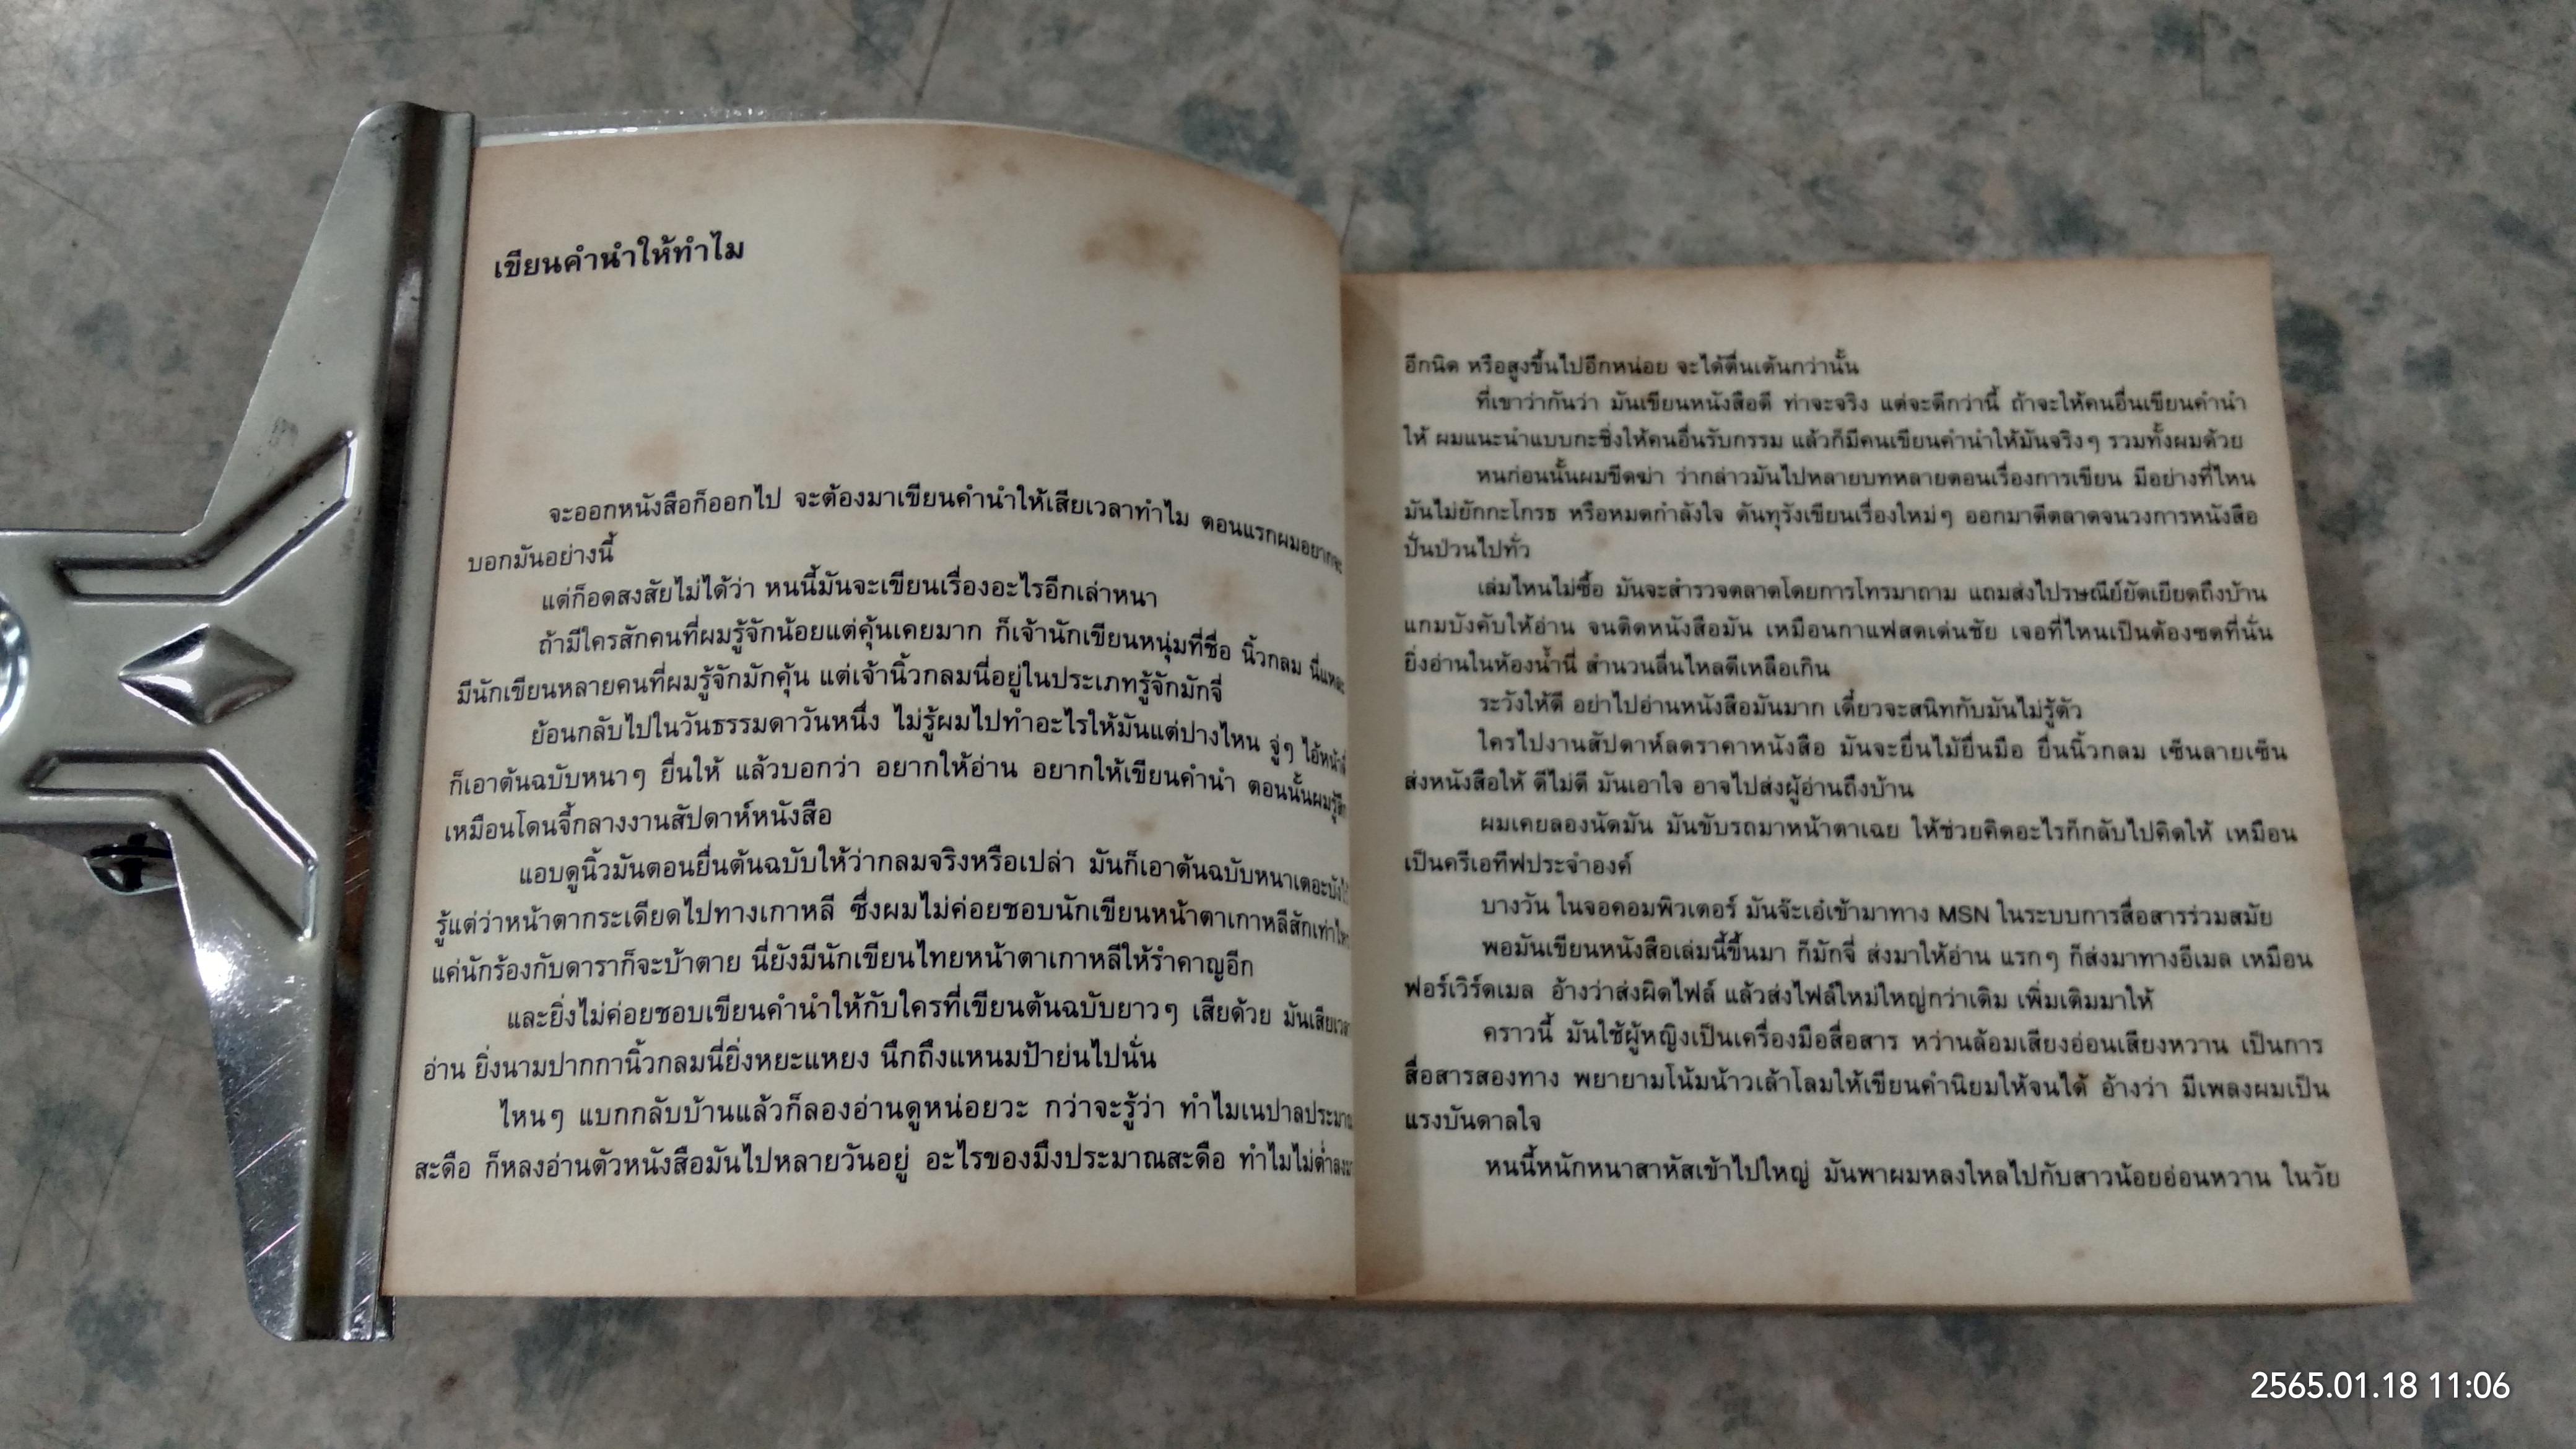 เขียนคำนำให้ทำไม
จะออกหนังสือก็ออกไป จะต้องมาเขียนคำนำให้เสียเวลาทำไม ตอนแรกผมอยากจะ
บอกมันอย่างนี้
แต่ก็อดสงสัยไม่ได้ว่า หนนี้มันจะเขียนเรื่องอะไรอีกเล่าหนา
ถ้ามีใครสักคนที่ผมรู้จักน้อยแต่คุ้นเคยมาก ก็เจ้านักเขียนหนุ่มที่ชื่อ นิ้วกลม นี่แหละ
มีนักเขียนหลายคนที่ผมรู้จักมักคุ้น แต่เจ้านิ้วกลมนี่อยู่ในประเภทรู้จักมักจี่
ย้อนกลับไปในวันธรรมดาวันหนึ่ง ไม่รู้ผมไปทำอะไรให้มันแต่ปางไหน จู่ๆ ไอ้หน้า
ก็เอาต้นฉบับหนาๆ ยื่นให้ แล้วบอกว่า อยากให้อ่าน อยากให้เขียนคำนำ ตอนนั้นผมรู้สึก
เหมือนโดนจี้กลางงานสัปดาห์หนังสือ
แอบดูนิ้วมันตอนยื่นต้นฉบับให้ว่ากลมจริงหรือเปล่า มันก็เอาต้นฉบับหนาเตอะบัง
รู้แต่ว่าหน้าตากระเดียดไปทางเกาหลี ซึ่งผมไม่ค่อยชอบนักเขียนหน้าตาเกาหลีสักเท่าไหร่
แค่นักร้องกับดาราก็จะบ้าตาย นี่ยังมีนักเขียนไทยหน้าตาเกาหลีให้รำคาญอีก
และยิ่งไม่ค่อยชอบเขียนคำนำให้กับใครที่เขียนต้นฉบับยาวๆ เสียด้วย มันเสียเวลา
อ่าน ยิ่งนามปากกานิ้วกลมนี่ยิ่งหยะแหยง นึกถึงแหนมป้าย่นไปนั่น
ไหนๆ แบกกลับบ้านแล้วก็ลองอ่านดูหน่อยวะ กว่าจะรู้ว่า ทำไมเนปาลประมาณ
สะดือ ก็หลงอ่านตัวหนังสือมันไปหลายวันอยู่ อะไรของมึงประมาณสะดือ ทำไมไม่ต่ำลงมา
อีกนิด หรือสูงขึ้นไปอีกหน่อย จะได้ตื่นเต้นกว่านั้น
ที่เขาว่ากันว่า มันเขียนหนังสือดี ท่าจะจริง แต่จะดีกว่านี้ ถ้าจะให้คนอื่นเขียนคำนำ
ให้ ผมแนะนำแบบกะซิ่งให้คนอื่นรับกรรม แล้วก็มีคนเขียนคำนำให้มันจริงๆ รวมทั้งผมด้วย
หนก่อนนั้นผมขีดฆ่า ว่ากล่าวมันไปหลายบทหลายตอนเรื่องการเขียน มีอย่างที่ไหน
มันไม่ยักกะโกรธ หรือหมดกำลังใจ ดันทุรังเขียนเรื่องใหม่ๆ ออกมาตีตลาดจนวงการหนังสือ
ปั่นป่วนไปทั่ว
เล่มไหนไม่ซื้อ มันจะสำรวจตลาดโดยการโทรมาถาม แถมส่งไปรษณีย์ยัดเยียดถึงบ้าน
แกมบังคับให้อ่าน จนติดหนังสือมัน เหมือนกาแฟสดเด่นชัย เจอที่ไหนเป็นต้องซดที่นั่น
ยิ่งอ่านในห้องน้ำนี่ สำนวนลื่นไหลดีเหลือเกิน
ระวังให้ดี อย่าไปอ่านหนังสือมันมาก เดี๋ยวจะสนิทกับมันไม่รู้ตัว
ใครไปงานสัปดาห์ลดราคาหนังสือ มันจะยื่นไม้ยื่นมือ ยื่นนิ้วกลม เซ็นลายเซ็น
ส่งหนังสือให้ ดีไม่ดี มันเอาใจ อาจไปส่งผู้อ่านถึงบ้าน
ผมเคยลองนัดมัน มันขับรถมาหน้าตาเฉย ให้ช่วยคิดอะไรก็กลับไปคิดให้ เหมือน
เป็นครีเอทีฟประจำองค์
บางวัน ในจอคอมพิวเตอร์ มันจ๊ะเอ๋เข้ามาทาง MSN ในระบบการสื่อสารร่วมสมัย
พอมันเขียนหนังสือเล่มนี้ขึ้นมา ก็มักจี่ ส่งมาให้อ่าน แรกๆ ก็ส่งมาทางอีเมล เหมือน
ฟอร์เวิร์ดเมล อ้างว่าส่งผิดไฟล์ แล้วส่งไฟล์ใหม่ใหญ่กว่าเดิม เพิ่มเติมมาให้
คราวนี้ มันใช้ผู้หญิงเป็นเครื่องมือสื่อสาร หว่านล้อมเสียงอ่อนเสียงหวาน เป็นการ
สื่อสารสองทาง พยายามโน้มน้าวเล้าโลมให้เขียนคำนิยมให้จนได้ อ้างว่า มีเพลงผมเป็น
แรงบันดาลใจ
หนนี้หนักหนาสาหัสเข้าไปใหญ่ มันพาผมหลงใหลไปกับสาวน้อยอ่อนหวาน ในวัย
2565.01.18 11:06